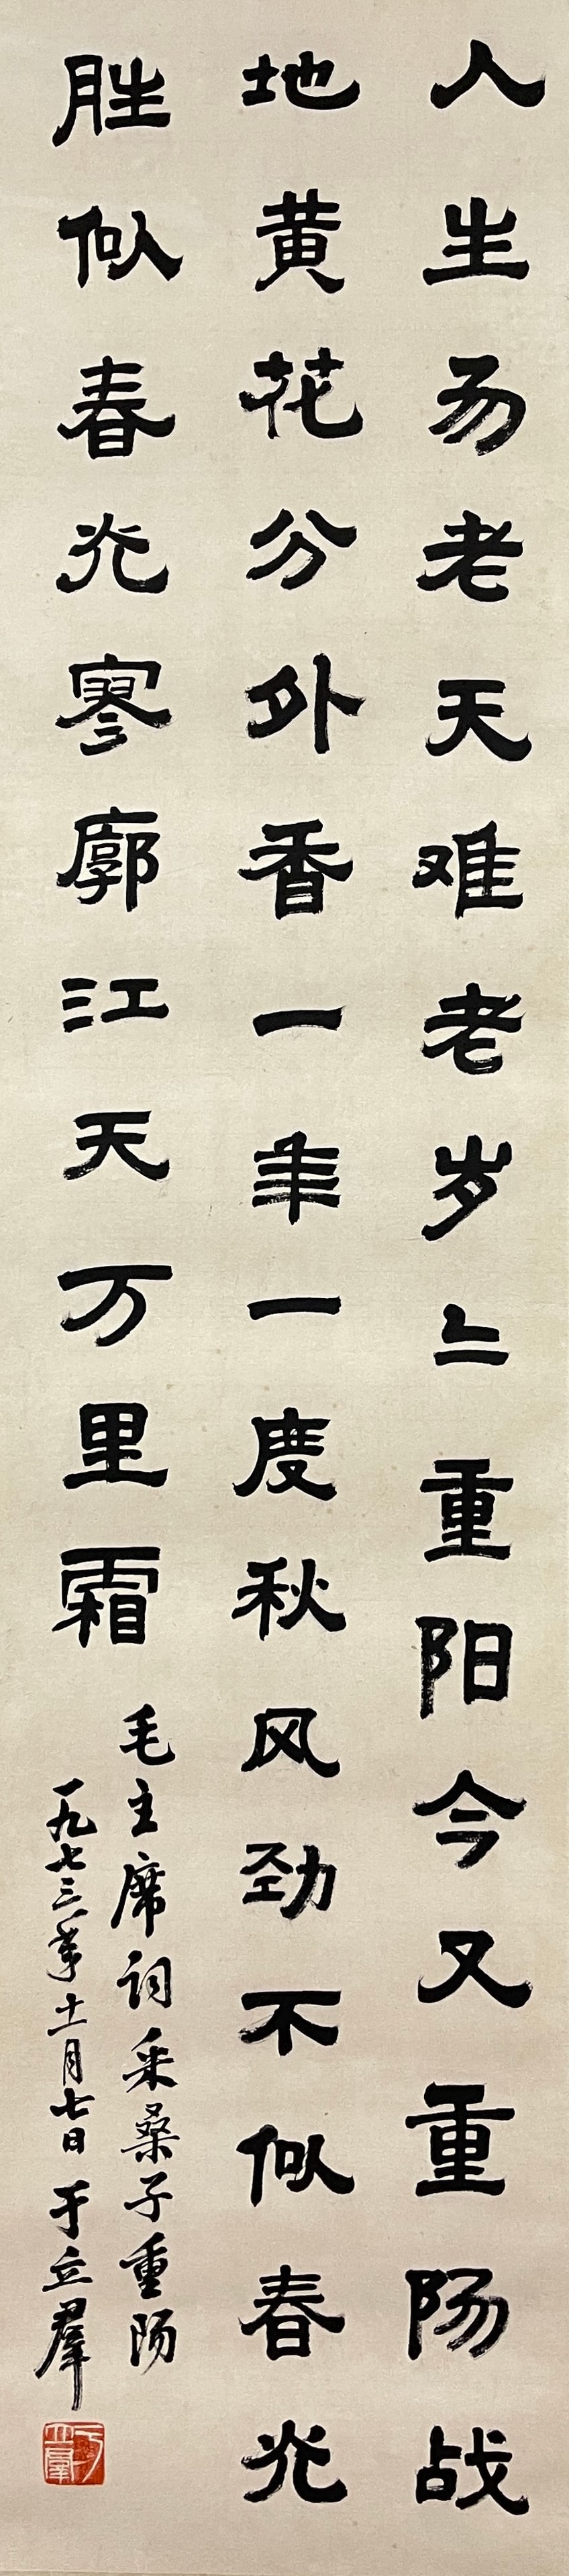 人生易老天难老岁〻重阳今又重阳战
地黄花分外香一年一度秋风劲不似春光
胜似春光寥廓江天万里霜
毛主席词采桑子重阳
一九七三年十一月七日于立群
于立群